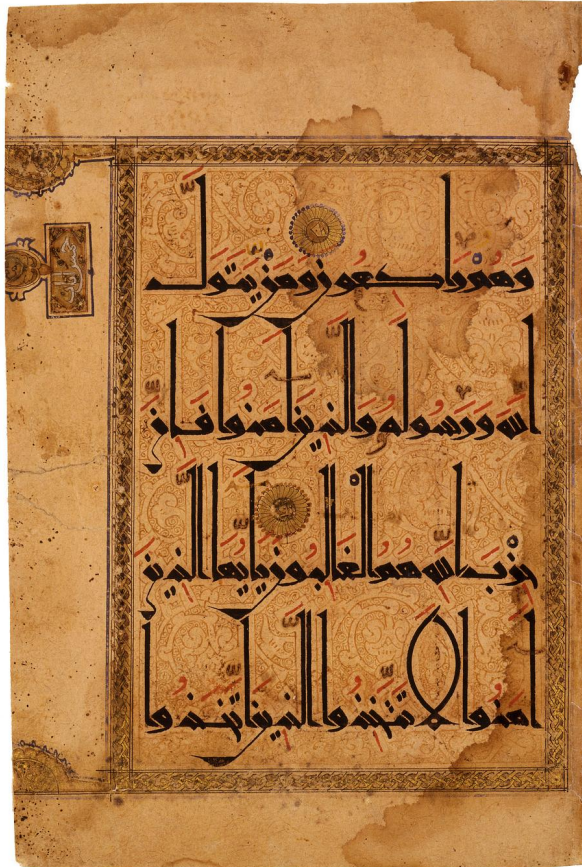 وَهُمْ رَاكِعُونَ وَمَنْ يَتَوَلَّ
اللَّهَ وَرَسُولَهُ وَالَّذِينَ اٰمَنُوا فَاِنَّ
حِزْبَ اللَّهِ هُمُ الْغَالِبُونَ يَايُّهَا الَّذِينَ
اٰمَنُوا لَا تَتَّخِذُوا الَّذِينَ اتَّخَذُوا